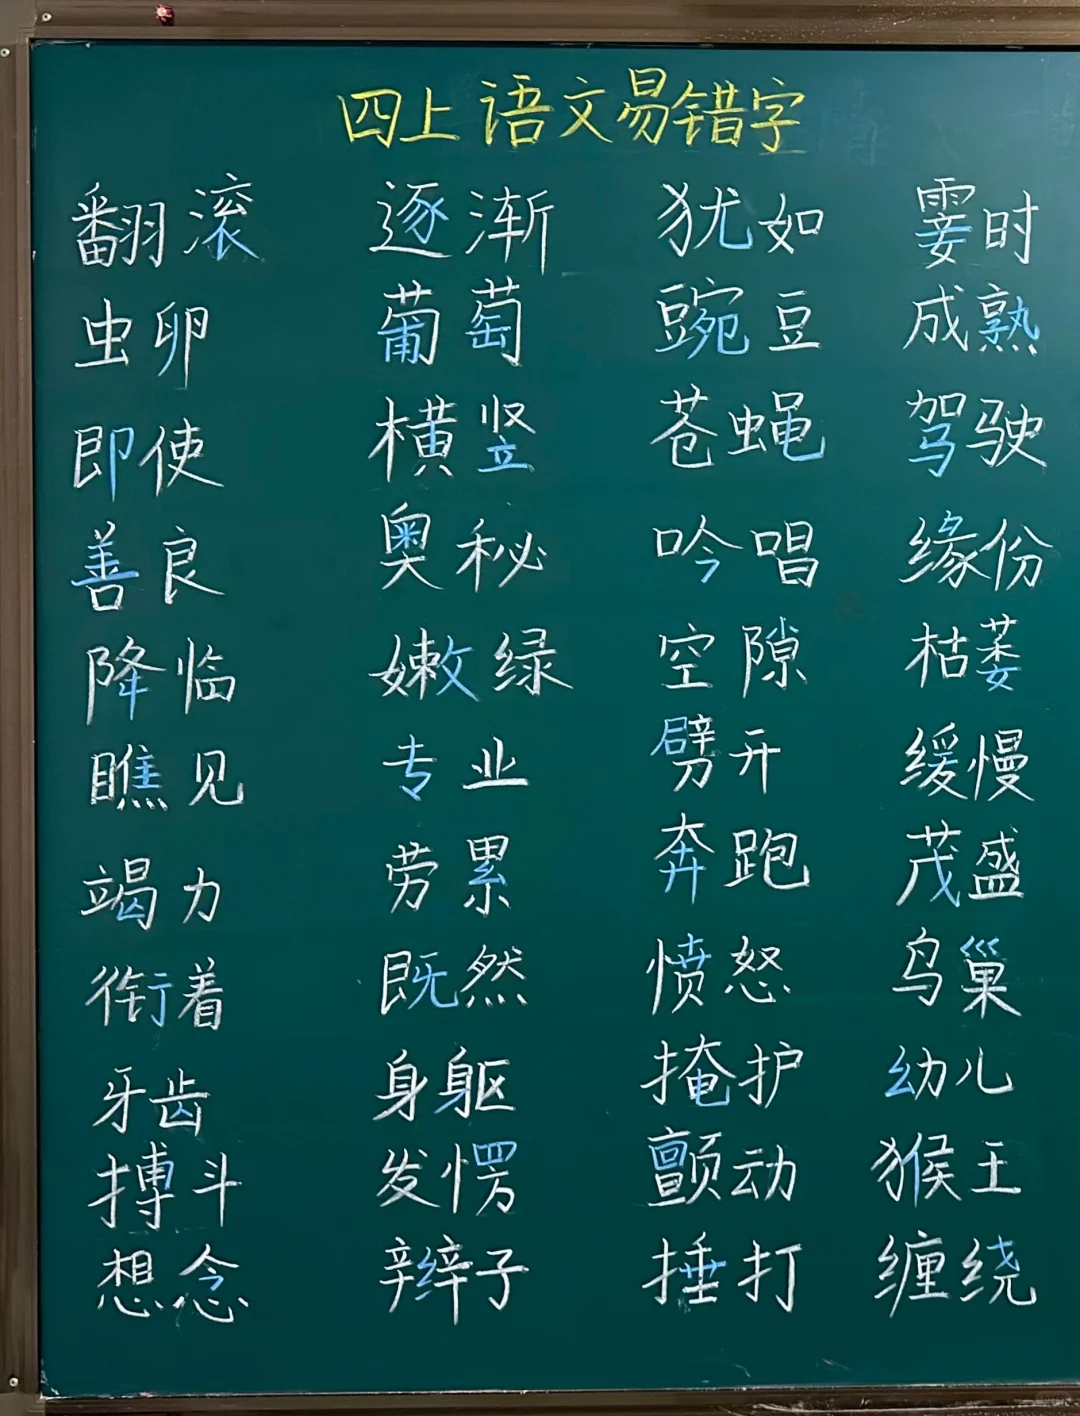 四上语文易错字
翻滚 逐渐 犹如 霎时
虫卵 葡萄 豌豆 成熟
即使 横竖 苍蝇 驾驶
善良 奥秘 吟唱 缘份
降临 嫩绿 空隙 枯萎
瞧见 专业 劈开 缓慢
竭力 劳累 奔跑 茂盛
衔着 既然 愤怒 鸟巢
牙齿 身躯 掩护 幼儿
搏斗 发愣 颤动 猴王
想念 辫子 捶打 缠绕